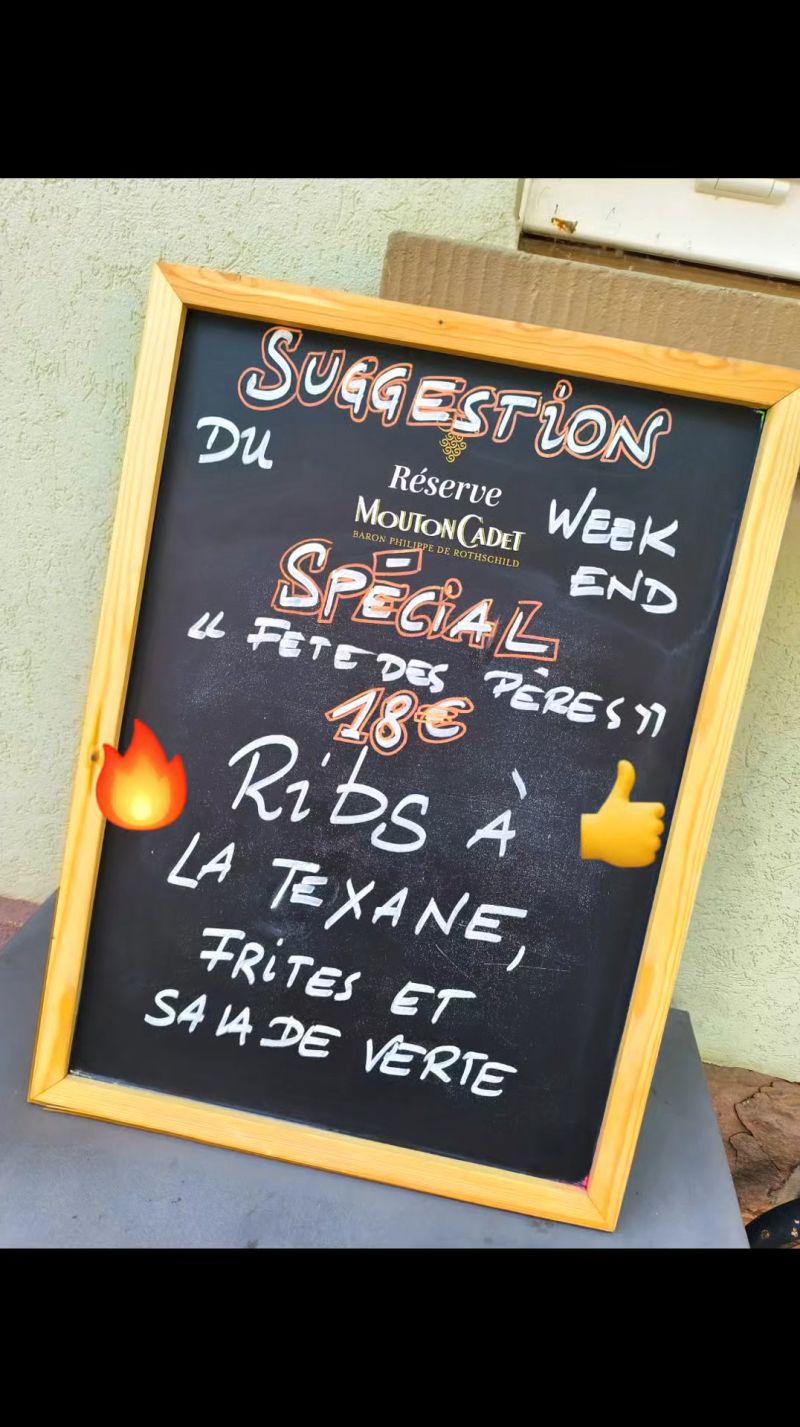 SUGGESTION
DU
Réserve
MOUTON CADET
BARON PHILIPPE DE ROTHSCHILD
WEEK
END
SPÉCIAL
« FETE DES PÈRES »
18€
Ribs À
LA TEXANE,
FRITES ET
SALADE VERTE